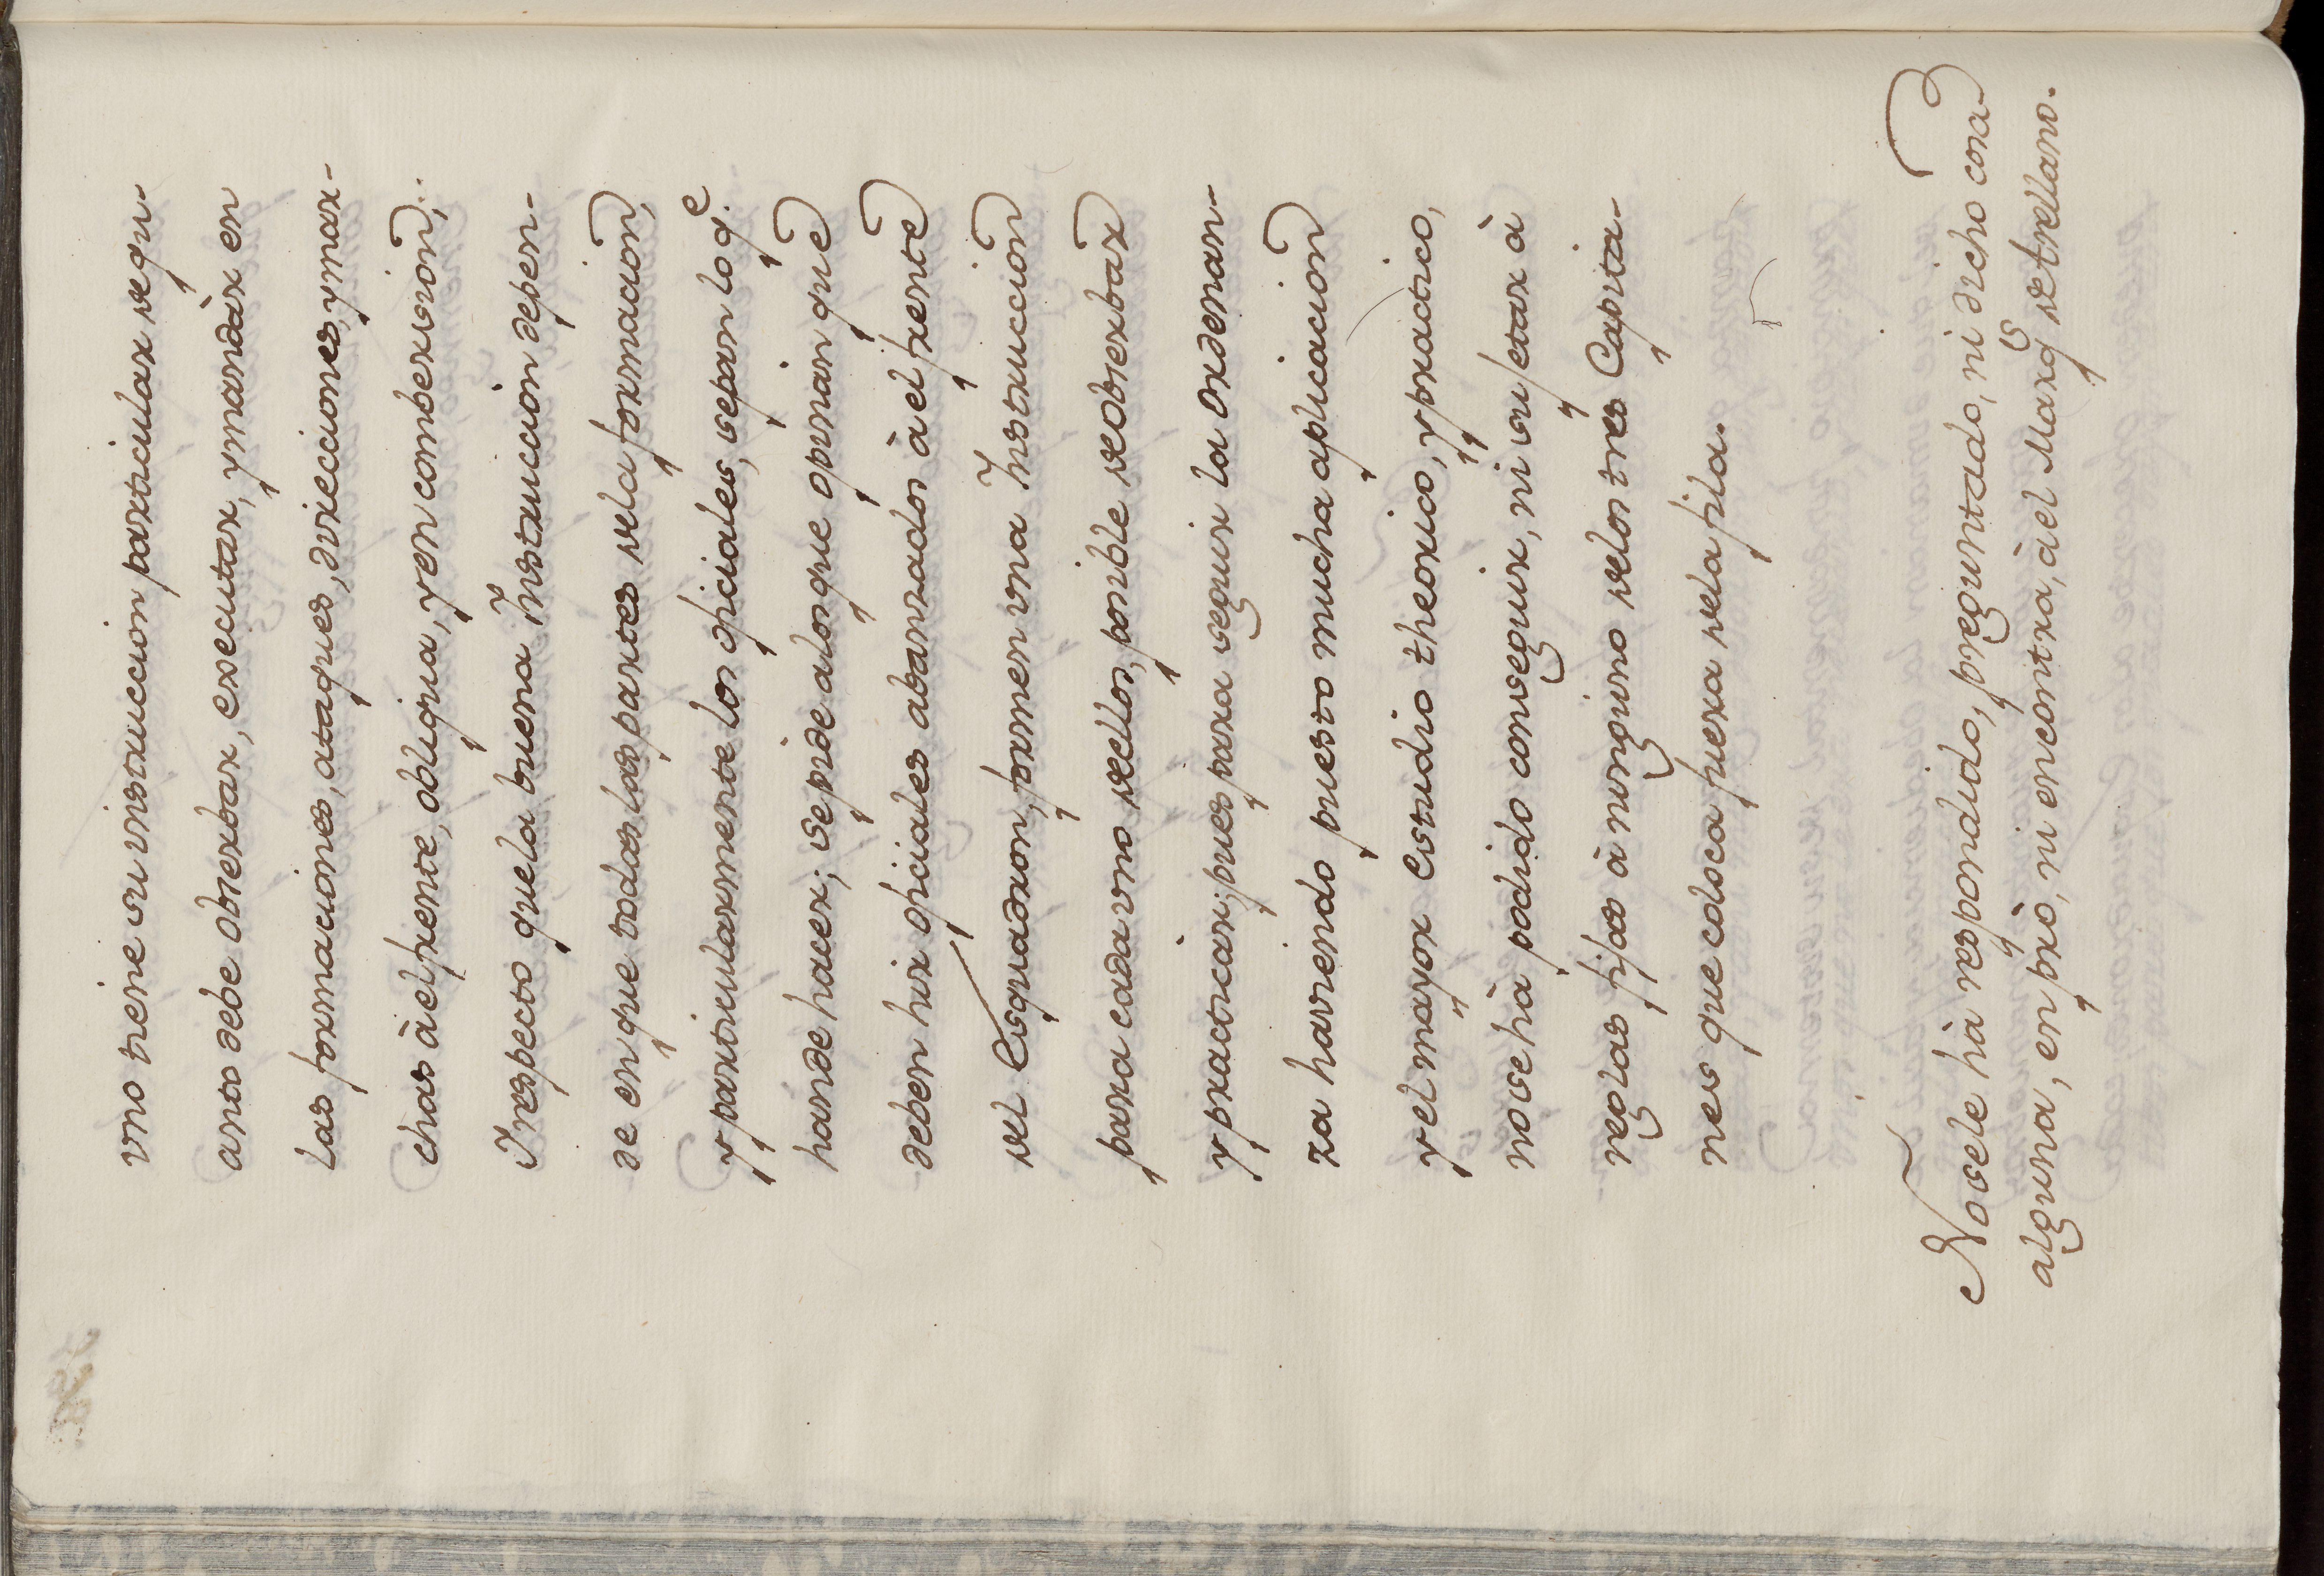 vno tiene su instruccion particular segu-
anto debe obserbar, executar, y mandàr en
las formaciones, ataques, direcciones, y mar-
chas à el frente, obliqua, y en comberision;
Irespecto que la buena Instruccion depen-
de en que todas las partes de la formacion,
y particularmente los oficiales, sepan lo q.e
han de hacer; se pide a los que opinan que
deben hir oficiales abanzados à el frente
del Esquadron, formen vna Instruccion
para cada vno de ellos, posible de obserbar
y practicar; pues para seguir la ordenan-
za haviendo puesto mucha aplicacion
y el mayor estudio theorico, y practico,
no se hà podido conseguir, ni sujetar à
reglas fijas à ninguno de los tres Capita-
nes que coloca fuera de la fila.
No se le hà respondido, preguntado, ni dicho cosa
alguna, en prò, ni en contra, à el Marq.s de trellano.